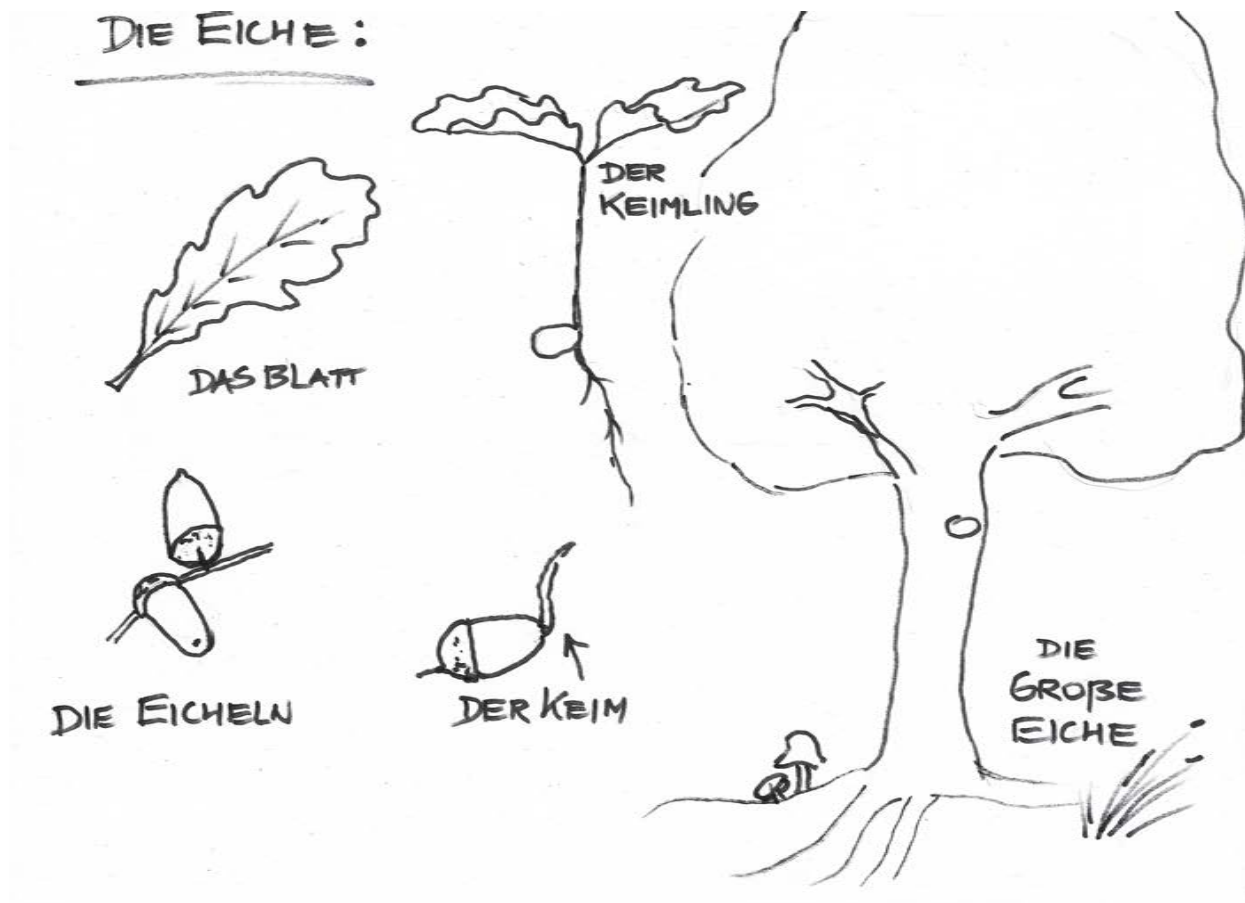 DIE EICHE:
DER
KEIMLING
DAS BLATT
DIE EICHELN
DER KEIM
DIE
GROßE
EICHE